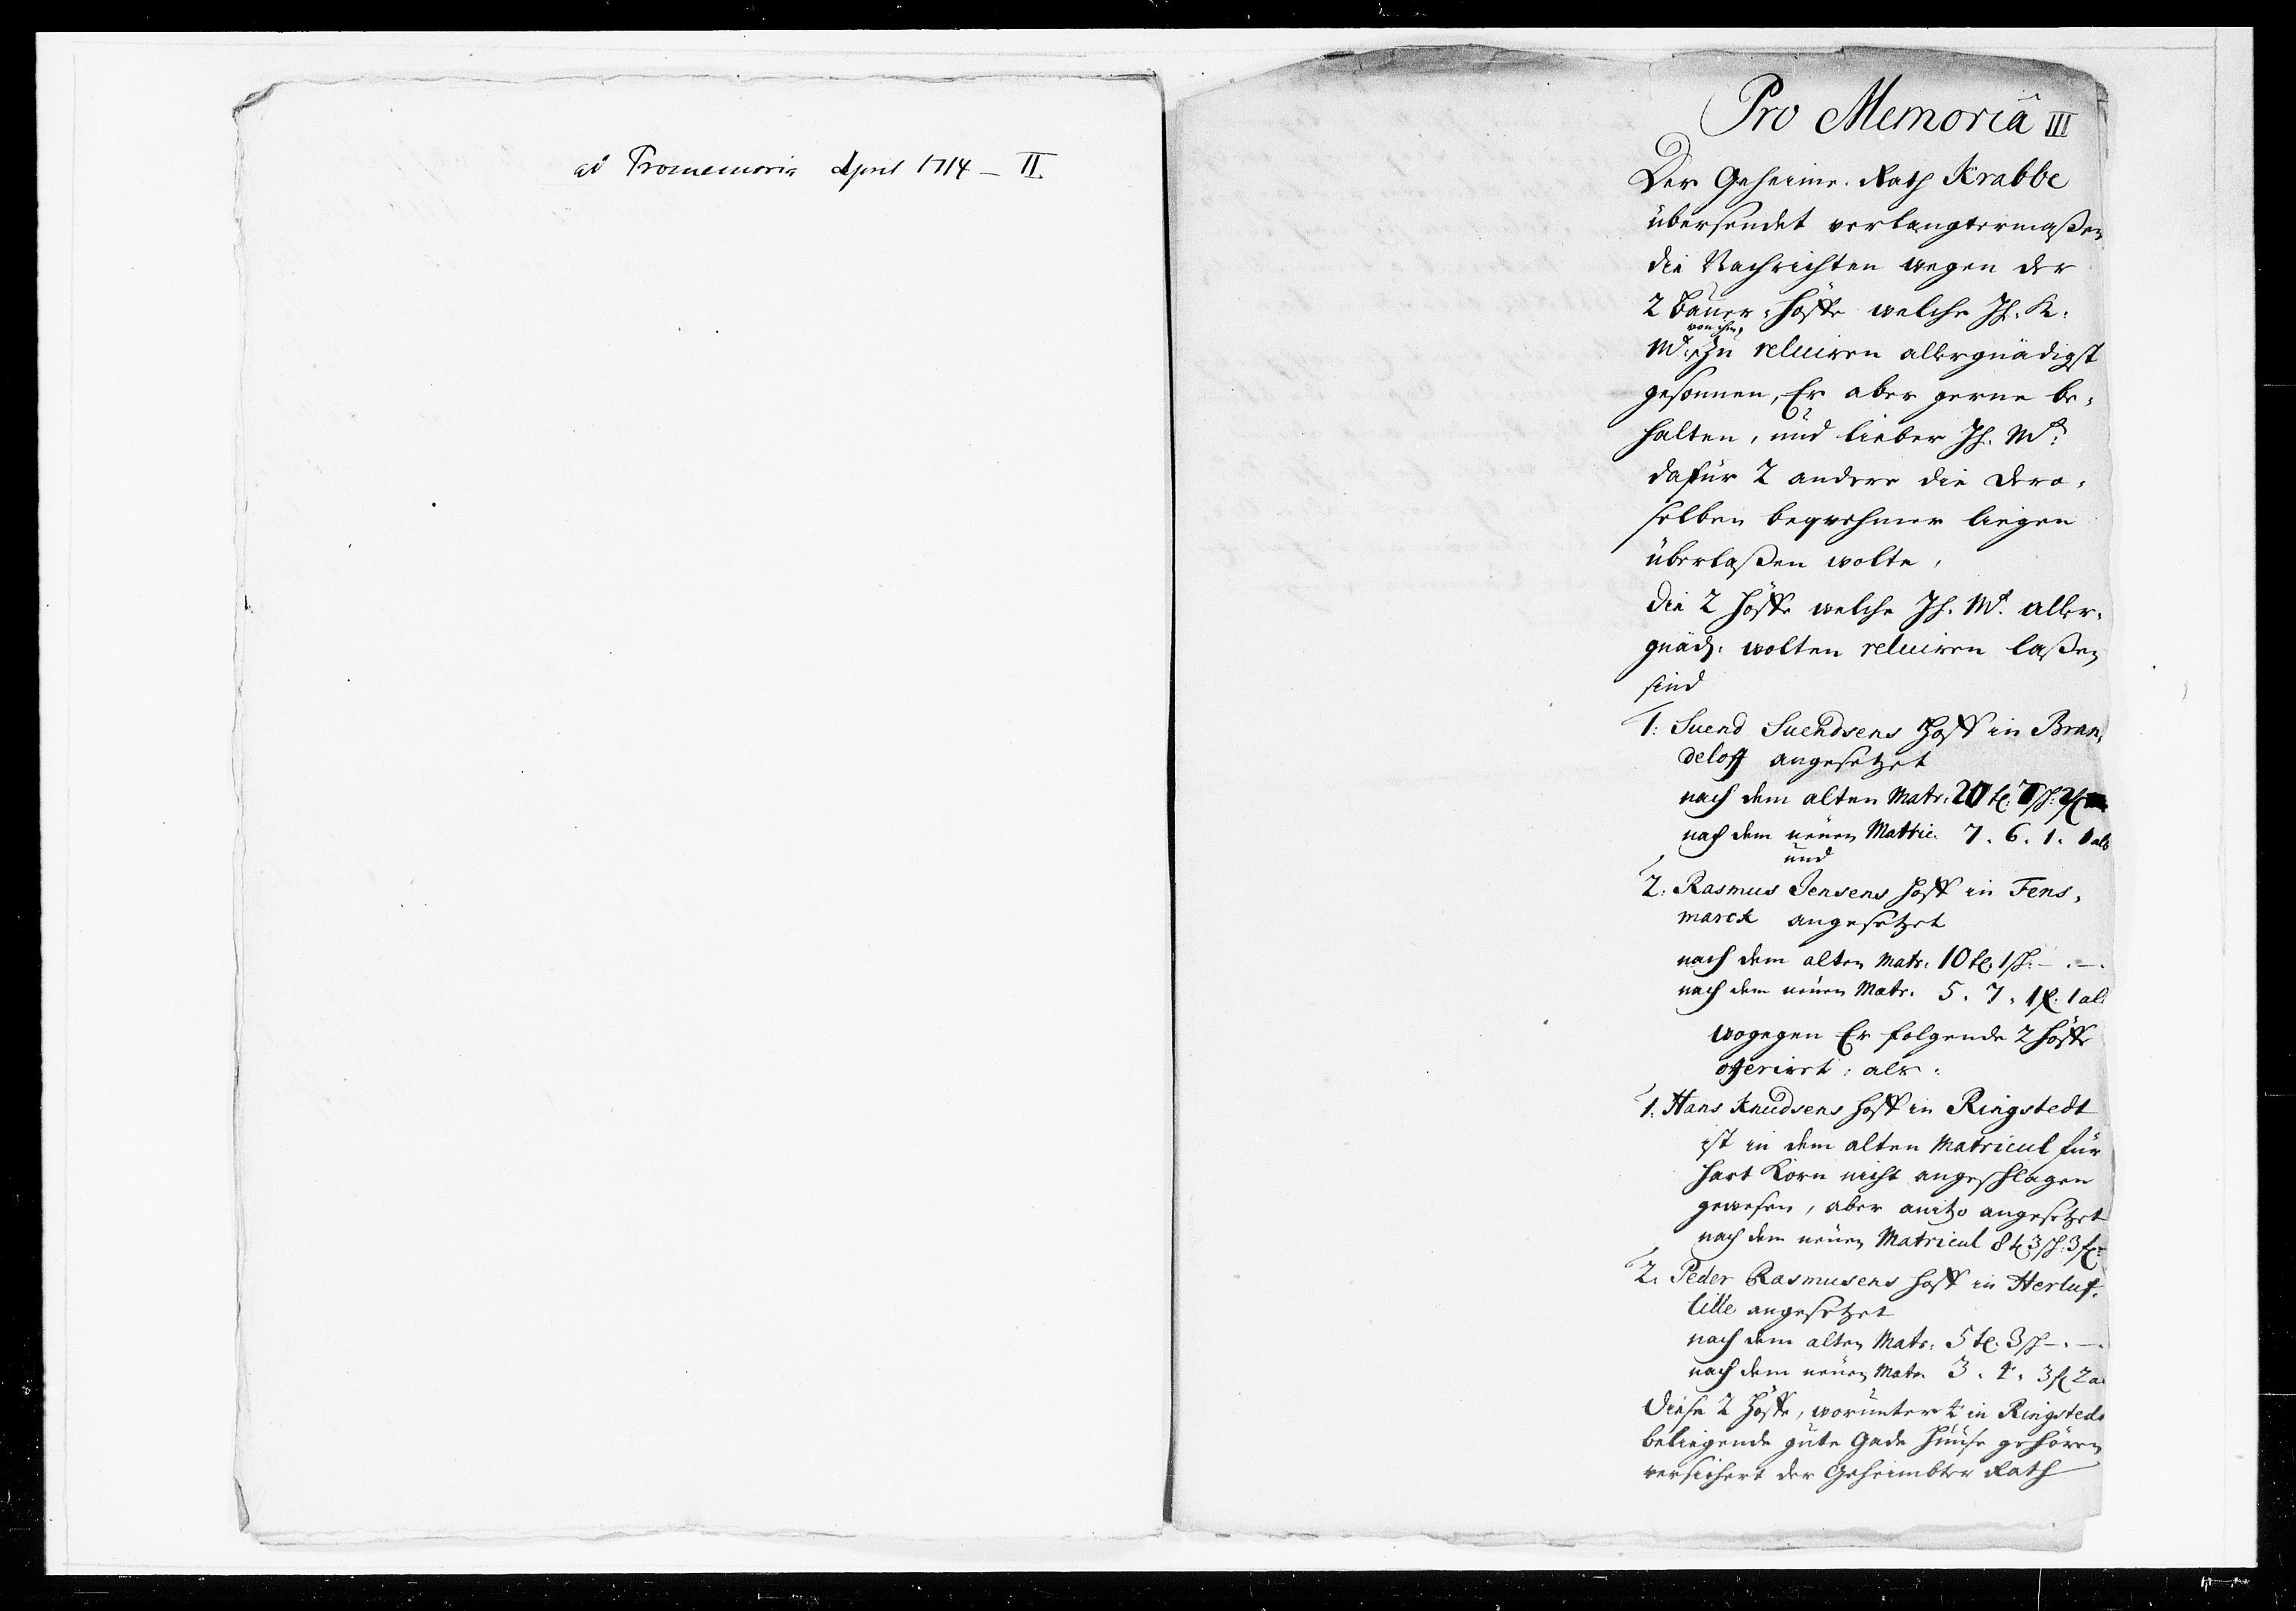 ad Promemoria April 1714 – II.
Pro Memoriâ III
Der Geheime Rath Krabbe
übersendet verlangtermaßen
die Nachrichten wegen der
2 Bauer-Höffe welche Ih. K.
von ihm
Mt. zu reluiren allergnädigst
gesonnen, Er aber gerne be-
halten, und lieber Ih. Mt.
dafür 2 andere die Dero-
selben beqvehmer liegen
überlaßen wolte,
die 2 Höffe welche Ih. Mt. aller-
gnäd. wolten reluiren laßen
sind
1. Suend Suendsens Hoff in Bran-
deloff angesetzet
nach dem alten Matr. 20 t.
nach dem neuen Matric. 7. 6. 1. 1 alb
und
2. Rasmus Jensens Hoff in Fens-
marck angesetzet
nach dem alten Matr. 10 t. 1 ß. – . – .
nach dem neuen Matr. 5. 7. 1 f. 1 al.
wogegen Er folgende 2 Höffe
offerirt: als:
1. Hans Knudsens Hoff in Ringstedt
ist in dem alten Matricul für
Hart Korn nicht angeschlagen
gewesen, aber anitzo angesetzet
nach dem neuen Matricul 8 t. 3 ß. 3 f.
2. Peder Rasmusens Hoff in Herluf-
lille angesetzet
nach dem alten Matr. 5 t. 3 ß – . – .
nach dem neuen Matr. 3. 4. 3 f 2 a
Diese 2 Höffe, worunter 4 in Ringsted
beliegende gute Gade Häuse gehören
versichert der Geheimbter Rath